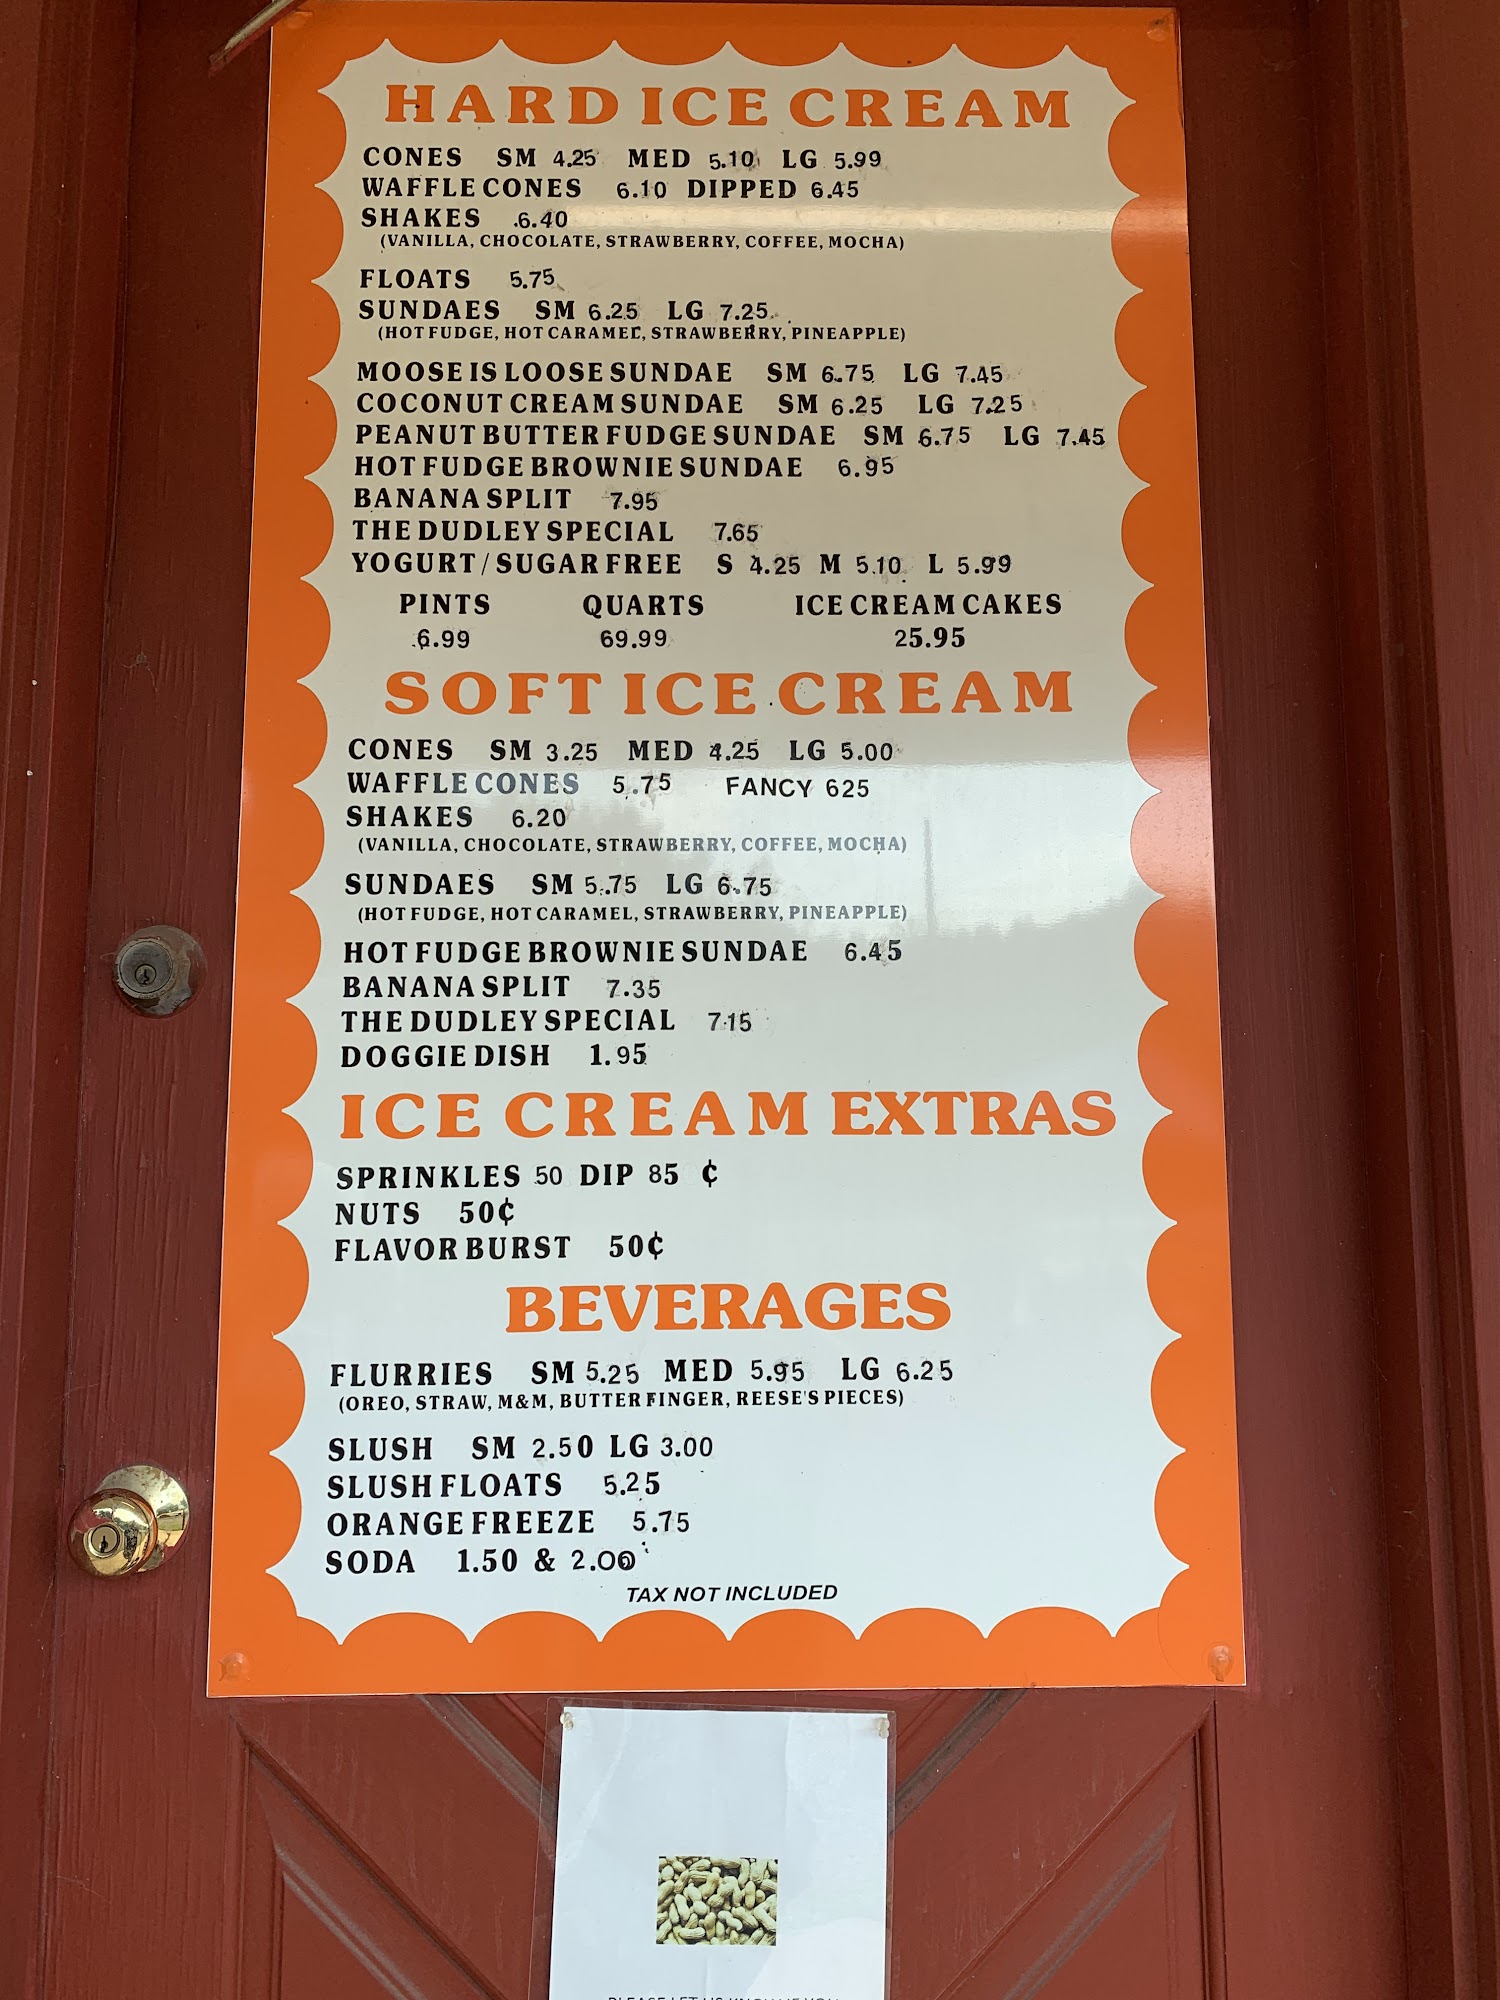 HARD ICE CREAM
CONES SM 4.25 MED 5.10 LG 5.99
WAFFLE CONES 6.10 DIPPED 6.45
SHAKES 6.40
(VANILLA, CHOCOLATE, STRAWBERRY, COFFEE, MOCHA)
FLOATS 5.75
SUNDAES SM 6.25 LG 7.25
(HOT FUDGE, HOT CARAMEL, STRAWBERRY, PINEAPPLE)
MOOSE IS LOOSE SUNDAE SM 6.75 LG 7.45
COCONUT CREAM SUNDAE SM 6.25 LG 7.25
PEANUT BUTTER FUDGE SUNDAE SM 6.75 LG 7.45
HOT FUDGE BROWNIE SUNDAE 6.95
BANANA SPLIT 7.95
THE DUDLEY SPECIAL 7.65
YOGURT / SUGAR FREE S 4.25 M 5.10 L 5.99
PINTS QUARTS ICE CREAM CAKES
6.99 69.99 25.95
SOFT ICE CREAM
CONES SM 3.25 MED 4.25 LG 5.00
WAFFLE CONES 5.75 FANCY 625
SHAKES 6.20
(VANILLA, CHOCOLATE, STRAWBERRY, COFFEE, MOCHA)
SUNDAES SM 5.75 LG 6.75
(HOT FUDGE, HOT CARAMEL, STRAWBERRY, PINEAPPLE)
HOT FUDGE BROWNIE SUNDAE 6.45
BANANA SPLIT 7.35
THE DUDLEY SPECIAL 7.15
DOGGIE DISH 1.95
ICE CREAM EXTRAS
SPRINKLES 50 DIP 85 ¢
NUTS 50¢
FLAVOR BURST 50¢
BEVERAGES
FLURRIES SM 5.25 MED 5.95 LG 6.25
(OREO, STRAW, M&M, BUTTER FINGER, REESE'S PIECES)
SLUSH SM 2.50 LG 3.00
SLUSH FLOATS 5.25
ORANGE FREEZE 5.75
SODA 1.50 & 2.00
TAX NOT INCLUDED
PLEASE LET US KNOW IF YOU